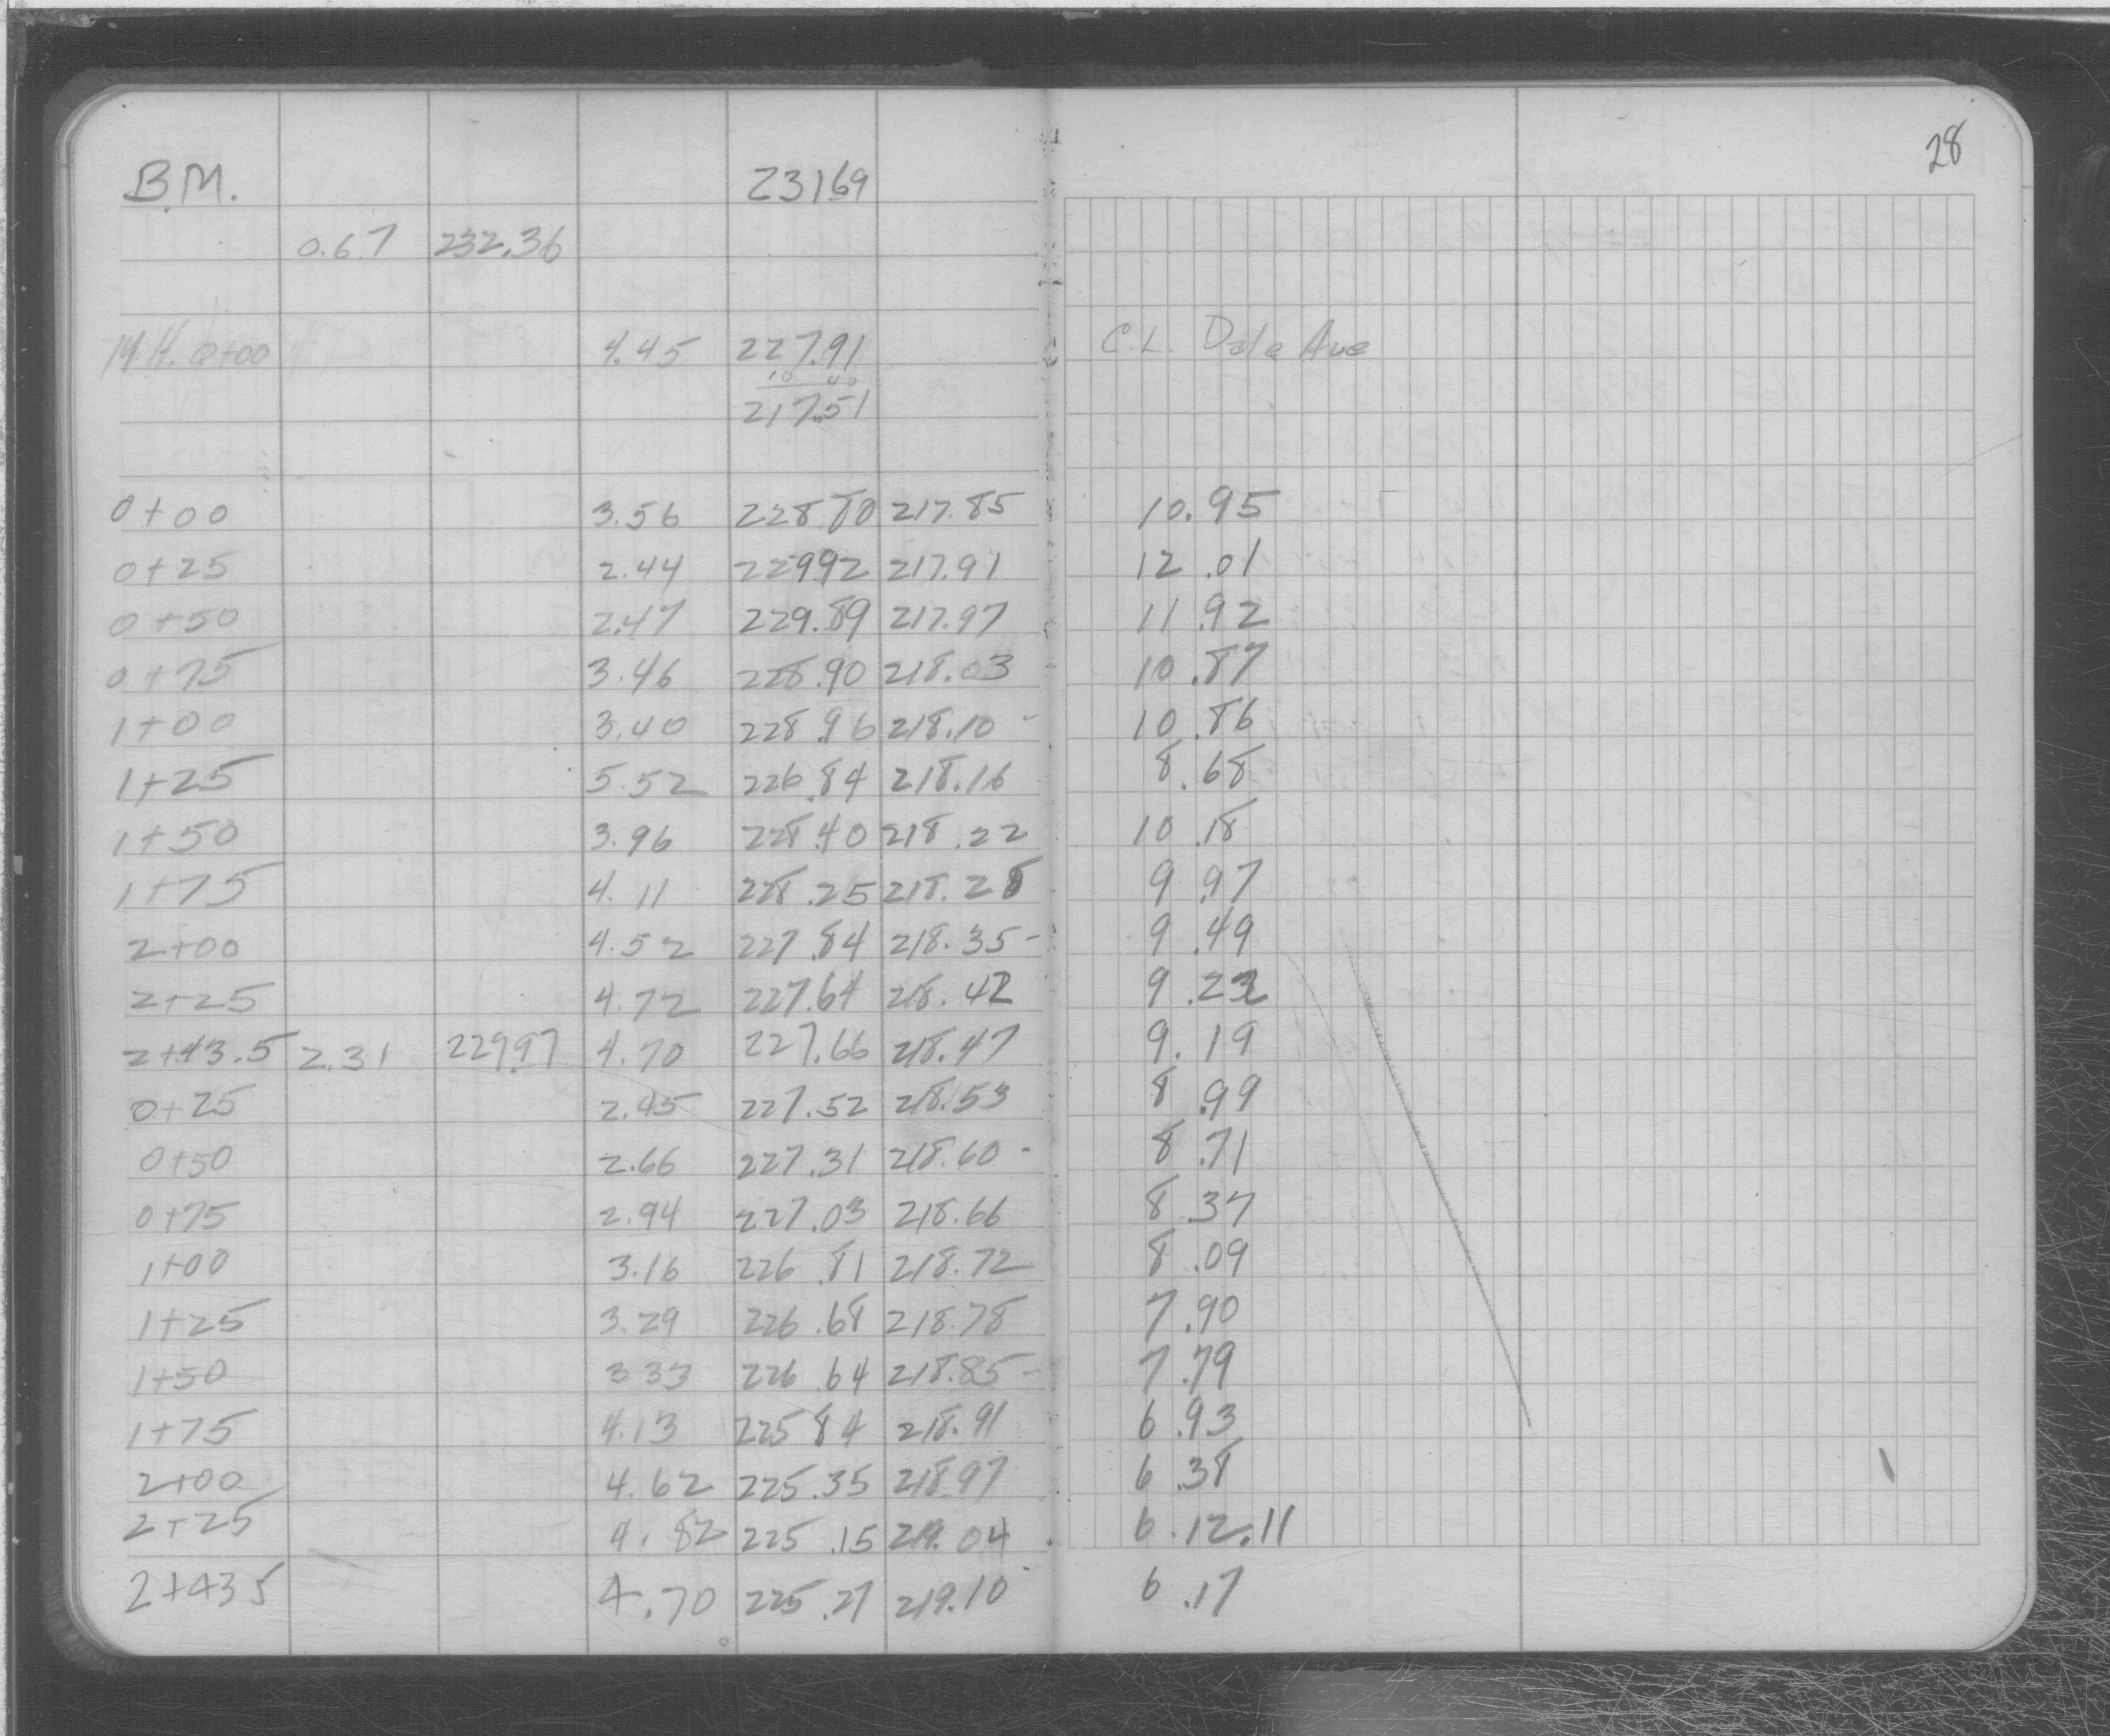 28
B.M. 23169
0.67 232.36
M.H. 0+00 4.45 227.91 C.L. Dale Ave
10 40
217.51
0+00 3.56 228.80 217.85 10.95
0+25 2.44 22992 217.91 12.01
0+50 2.47 229.89 217.97 11.92
0+75 3.46 228.90 218.03 10.87
1+00 3.40 228.96 218.10 - 10.86
1+25 5.52 226.84 218.16 8.68
1+50 3.96 228.40 218.22 10.18
1+75 4.11 228.25 218.28 9.97
2+00 4.52 227.84 218.35 - 9.49
2+25 4.72 227.64 218.42 9.22
2+43.5 2.31 229.97 4.70 227.66 218.47 9.19
0+25 2.45 227.52 218.53 8.99
0+50 2.66 227.31 218.60 - 8.71
0+75 2.94 227.03 218.66 8.37
1+00 3.16 226.81 218.72 8.09
1+25 3.29 226.68 218.78 7.90
1+50 3.33 226.64 218.85 - 7.79
1+75 4.13 225 84 218.91 6.93
2+00 4.62 225.35 218.97 6.38
2+25 4.82 225.15 219.04 6.12.11
2+435 4.70 225.27 219.10 - 6.17